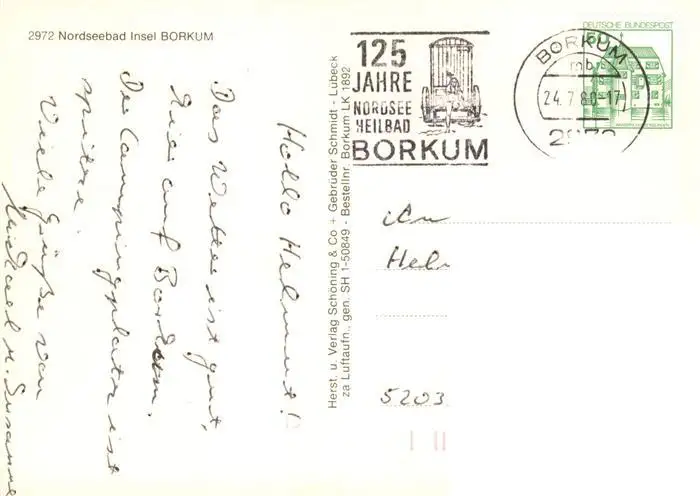 2972 Nordseebad Insel BORKUM
Hallo Helmut!
Das Wetter ist gut,
hier auf Borkum.
De Campingplatz ist
spitze.
Viele Grüße von
Michael u. Susanne
Herst. u. Verlag Schöning & Co + Gebrüder Schmidt - Lübeck
za Luftaufn., gen. SH 1-50849 - Bestellnr. Borkum LK 1892
125
JAHRE
NORDSEE
HEILBAD
BORKUM
BORKUM
mb
24.7.80-17
2972
DEUTSCHE BUNDESPOST
50
An
Hel
5203